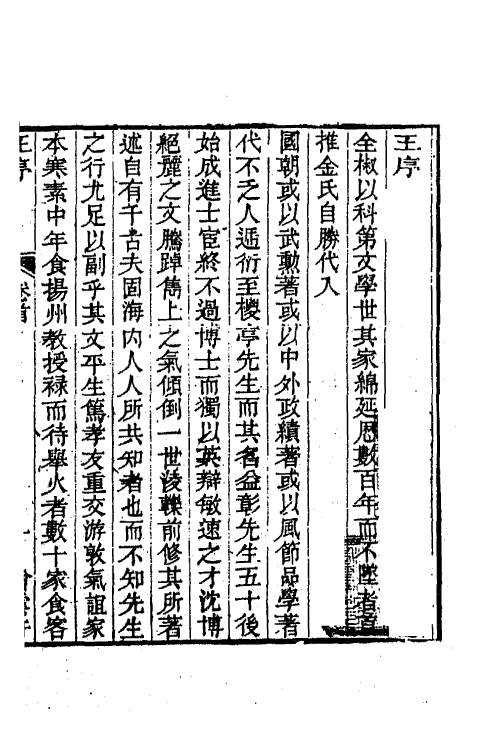 王序
全椒以科第文學世其家綿延歷數百年而不墜者首
推金氏自勝代入
國朝或以武勳著或以中外政績著或以風節品學著
代不乏人遞衍至㯶亭先生而其名益彰先生五十後
始成進士宦終不過博士而獨以英辯敏速之才沈博
絕麗之文騰踔儁上之氣傾倒一世淩轢前修其所著
述自有千古夫固海內人人所共知者也而不知先生
之行尤足以副乎其文平生篤孝友重交游敦氣誼家
本寒素中年食揚州教授祿而待舉火者數十家食客
王序
卷首
一